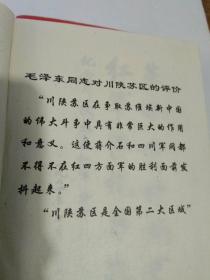 毛泽东同志对川陕苏区的评价
“川陕苏区在争取苏维埃新中国
的伟大斗争中具有非常巨大的作用
和意义。这使蒋介石和四川军阀都
不得不在红四方面军的胜利面前发
抖起来。”
“川陕苏区是全国第二大区域”